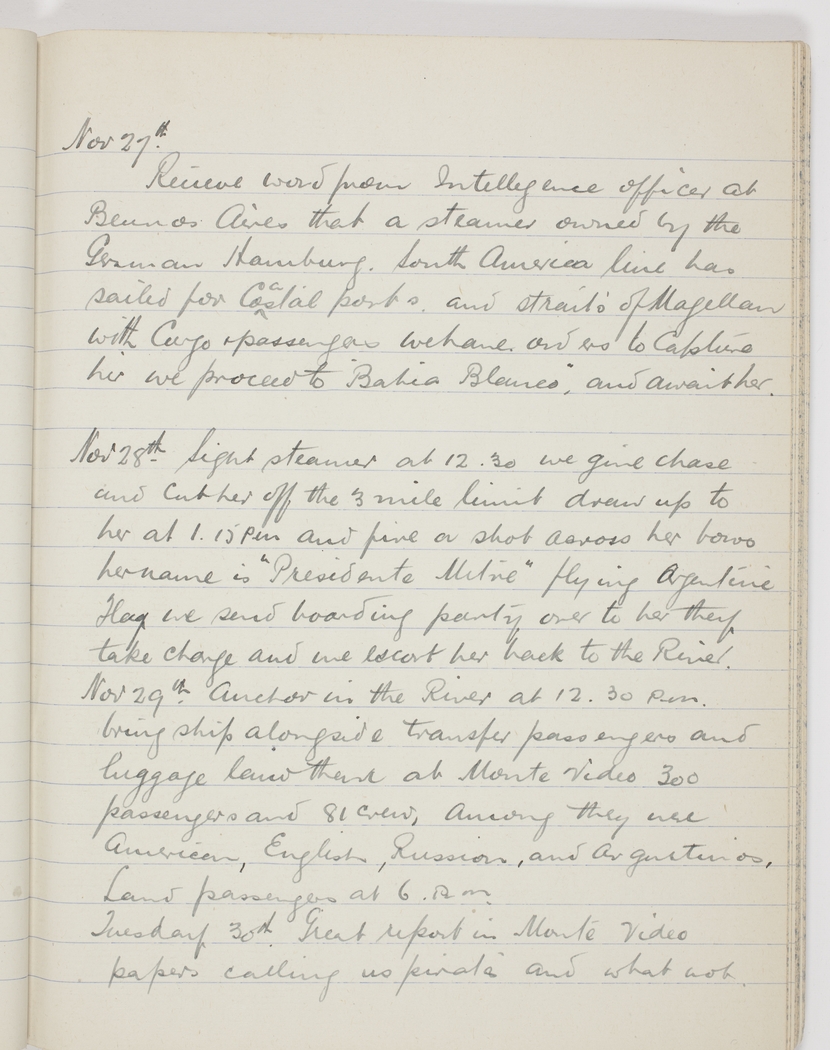 Nov 27th.
Recieve word from Intellegence officer at
Beunos Aires that a steamer owned by the
German Hamburg. South America line has
sailed for Coastal ports. and straits of Magellan
with Cargo + passengers we have orders to Capture
her we proceed to "Bahia Blanco", and await her.
Nov 28th Sight steamer at 12.30 we give chase
and Cut her off the 3 mile limit draw up to
her at 1.15 pm and fire a shot across her bows
her name is "Presidente Mitre" flying Argentine
Flag we send boarding party over to her they
take charge and we escort her back to the River.
Nov 29th. Anchor in the River at 12.30 p.m.
bring ship alongside transfer passengers and
luggage land them at Monte Video 300
passengers and 81 crew, Among they were
American, English, Russion, and Argentinos,
Land passengers at 6. p.m.
Tuesday 30th. Great report in Monte Video
papers calling us pirate and what not.